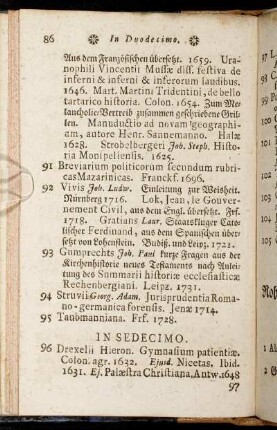 86 In Duodecimo.
Aus dem Französischen übersetzt. 1659. Ura-
nophili Vincentii Mussæ diss. festiva de
inferni & inferni & inferorum laudibus.
1646. Mart. Martini Tridentini, de bello
tartarico historia. Colon. 1654. Zum Me-
lancholie-Vertreib zusammen geschriebene Gril-
len. Manuductio ad novam geographi-
am, autore Henr. Sannemanno. Halæ
1628. Strobelbergeri Job. Steph. Histo-
ria Monspeliensis. 1625.
91 Breviarium politicorum secundum rubri-
cas Mazarinicas. Franckf. 1696.
92 Vivis Joh. Ludw. Einleitung zur Weisheit.
Nürnberg 1716. Lok, Jean, le Gouver-
nement Civil, aus dem Engl. übersetzt. Frf.
1718. Gratians Laur. Staatskluger Cato-
lischer Ferdinand, aus dem Spanischen über-
setzt von Lohenstein. Budiß. und Leipz. 1721.
93 Gumprechts Joh. Paul kurze Fragen aus der
Kirchenhistorie neues Testaments nach Anlei-
tung des Summarii historiæ ecclesiasticæ
Rechenbergiani. Leipz. 1731.
94 Struvii Georg. Adam. Jurisprudentia Roma-
no-germanica forensis. Jenæ 1714.
95 Taubmanniana. Frf. 1728.
IN SEDECIMO.
96 Drexelii Hieron. Gymnasium patientiæ.
Colon. agr. 1632. Ejusd. Nicetas. Ibid.
1631. Ej. Palæstra Christiana, Antw. 1648
97